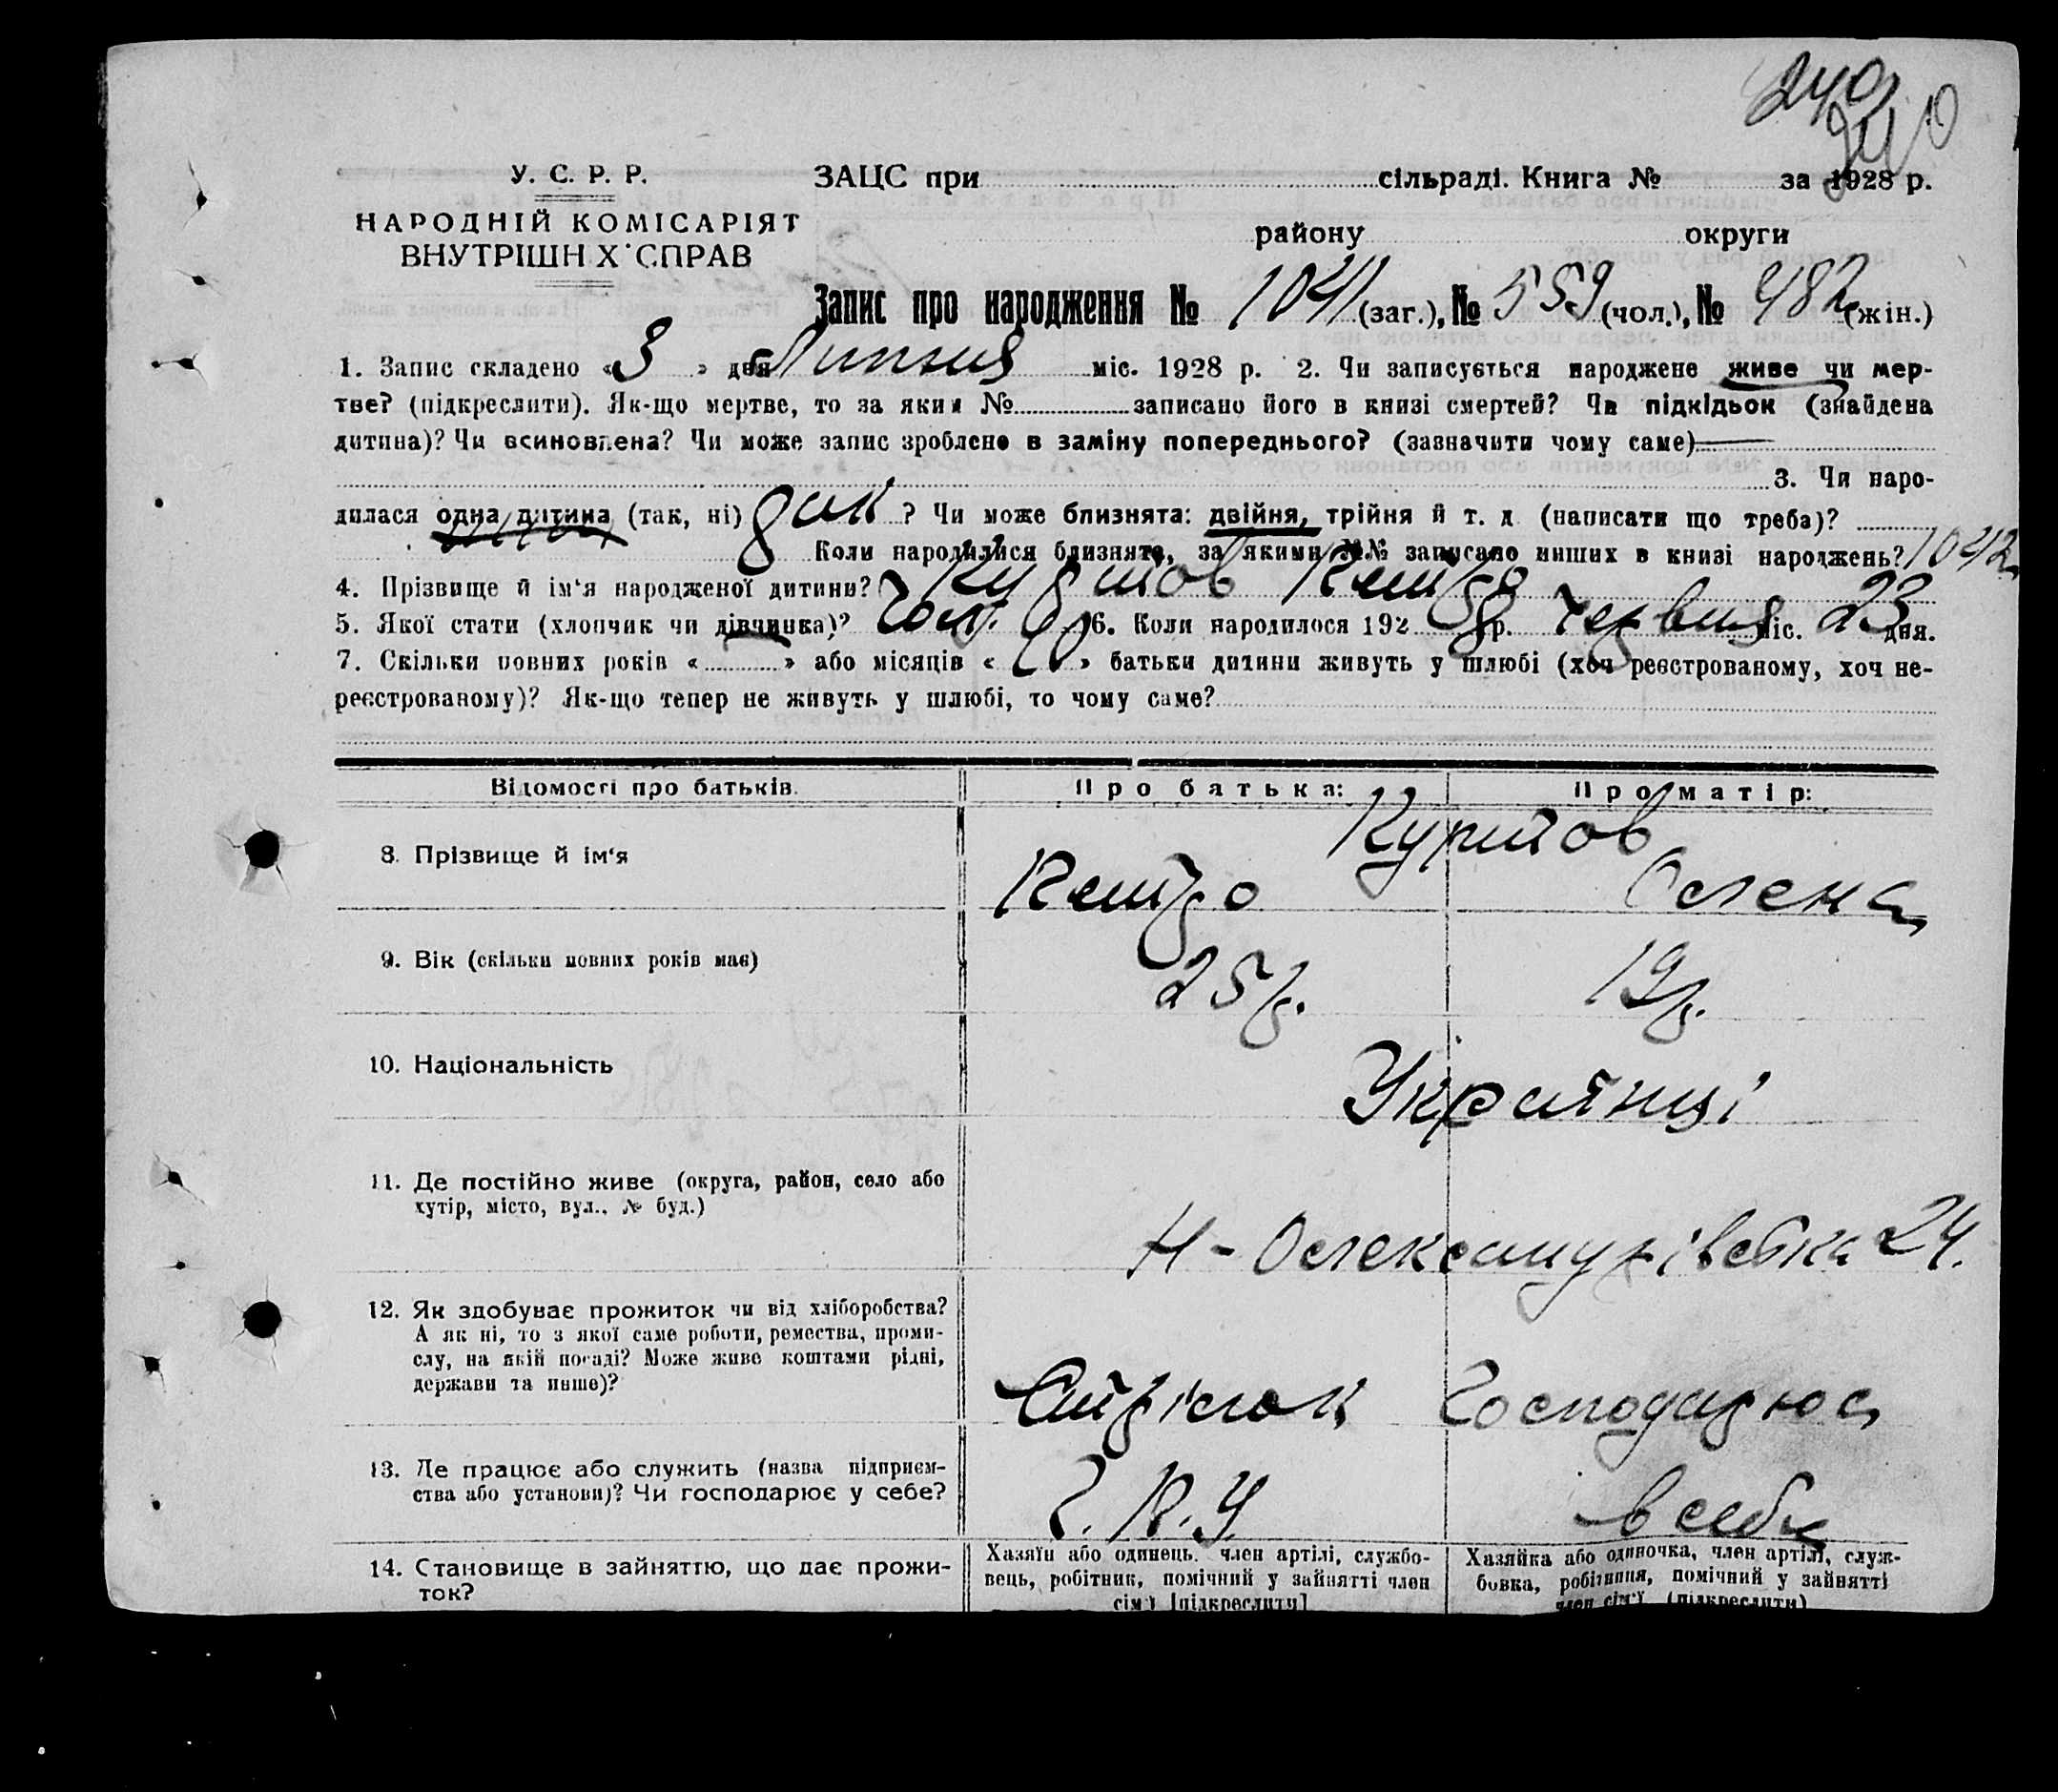 240
240
У. С. Р. Р.
НАРОДНІЙ КОМІСАРІЯТ
ВНУТРІШН Х СПРАВ
ЗАЦС при сільраді. Книга № за 1928 р.
району округи
Запис про народження № 1041 (заг.), № 559 (чол.), № 482 (жін.)
1. Запис складено «3» дня Липня міс. 1928 р. 2. Чи записується народжене живе чи мер-
тве? (підкреслити). Як-що мертве, то за яким № записано його в книзі смертей? Чи підкідьок (знайдена
дитина)? Чи всиновлена? Чи може запис зроблено в заміну попереднього? (зазначити чому саме)
3. Чи наро-
дилася одна дитина (так, ні) ? Чи може близнята: двійня, трійня й т. д (написати що треба)?
Коли народилися близнята, за якими №№ записано инших в книзі народжень? 1042
4. Прізвище й ім‘я народженої дитини? Петро
5. Якої стати (хлопчик чи дівчинка)? Чол. 6. Коли народилося 192 8 р. Червня міс. 23 дня.
7. Скільки повних років « » або місяців «10» батьки дитини живуть у шлюбі (хоч реєстрованому, хоч не-
реєстрованому)? Як-що тепер не живуть у шлюбі, то чому саме?
Відомості про батьків. Про батька: Про матір:
8. Прізвище й ім‘я
Петро Олена
9. Вік (скільки повних років має) 25 р. 19 р.
10. Національність Українці
11. Де постійно живе (округа, район, село або
хутір, місто, вул., № буд.)
Н-Олександрівська 24.
12. Як здобуває прожиток чи від хліборобства?
А як ні, то з якої саме роботи, ремества, проми-
слу, на якій посаді? Може живе коштами рідні,
держави та инше)?
Стрілок Господарює
13. Де працює або служить (назва підприєм-
ства або установи)? Чи господарює у себе?
в себе
14. Становище в зайняттю, що дає прожи-
ток?
Хазяїн або одинець, член артілі, службо-
вець, робітник, помічний у зайнятті член
сім‘ї [підкреслити]
Хазяйка або одиночка, член артілі, служ-
бовка, робітниця, помічний у зайнятті
член сім‘ї (підкреслити)